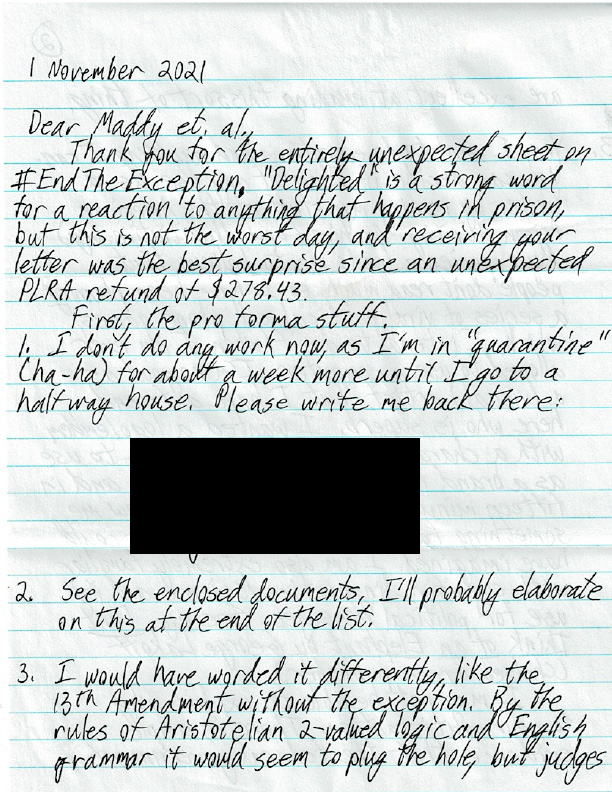 1 November 2021
Dear Maddy et. al.,
Thank you for the entirely unexpected sheet on
#EndTheException. "Delighted" is a strong word
for a reaction to anything that happens in prison,
but this is not the worst day, and receiving your
letter was the best surprise since an unexpected
PLRA refund of $278.43.
First, the pro forma stuff.
1. I don't do any work now, as I'm in "quarantine"
(ha-ha) for about a week more until I go to a
halfway house. Please write me back there:
2. See the enclosed documents, I'll probably elaborate
on this at the end of the list.
3. I would have worded it differently, like the
13th Amendment without the exception. By the
rules of Aristotelian 2-valued logic and English
grammar it would seem to plug the hole, but judges